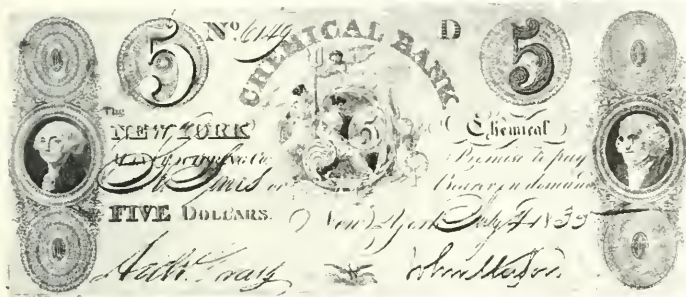 5 No. 6149 CHEMICAL BANK D 5
The
NEW YORK Chemical
Manufacturing Co. Promise to pay
or Bearer on demand
FIVE DOLLARS. New York July 4 1835